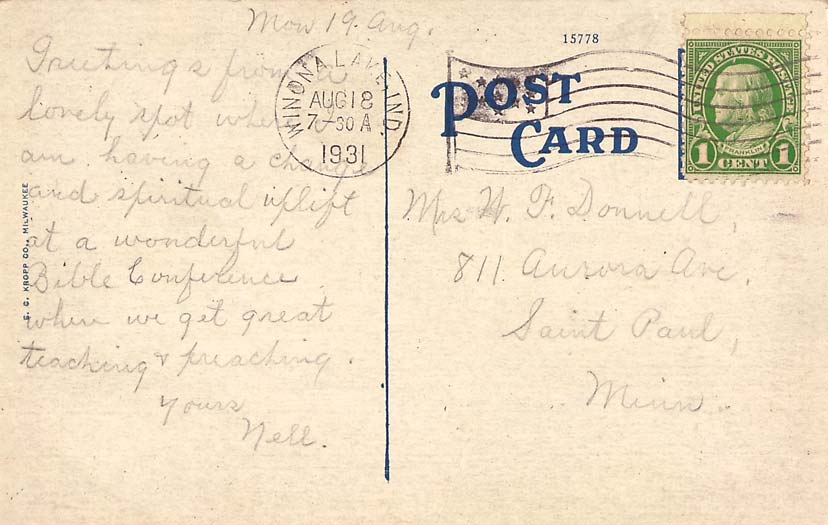 Mon 19 Aug.
Greetings from a
lovely spot where I
am having a change
and spiritual uplift
at a wonderful
Bible Conference
where we get great
teaching & preaching.
Yours
Nell.
E. C. KROPP CO., MILWAUKEE
WINONA LAKE, IND.
AUG 18
7-30 A
1931
15778
POST
CARD
UNITED STATES POSTAGE
FRANKLIN
1 CENT 1
Mrs W. F. Donnell,
811 Aurora Ave,
Saint Paul,
Minn.